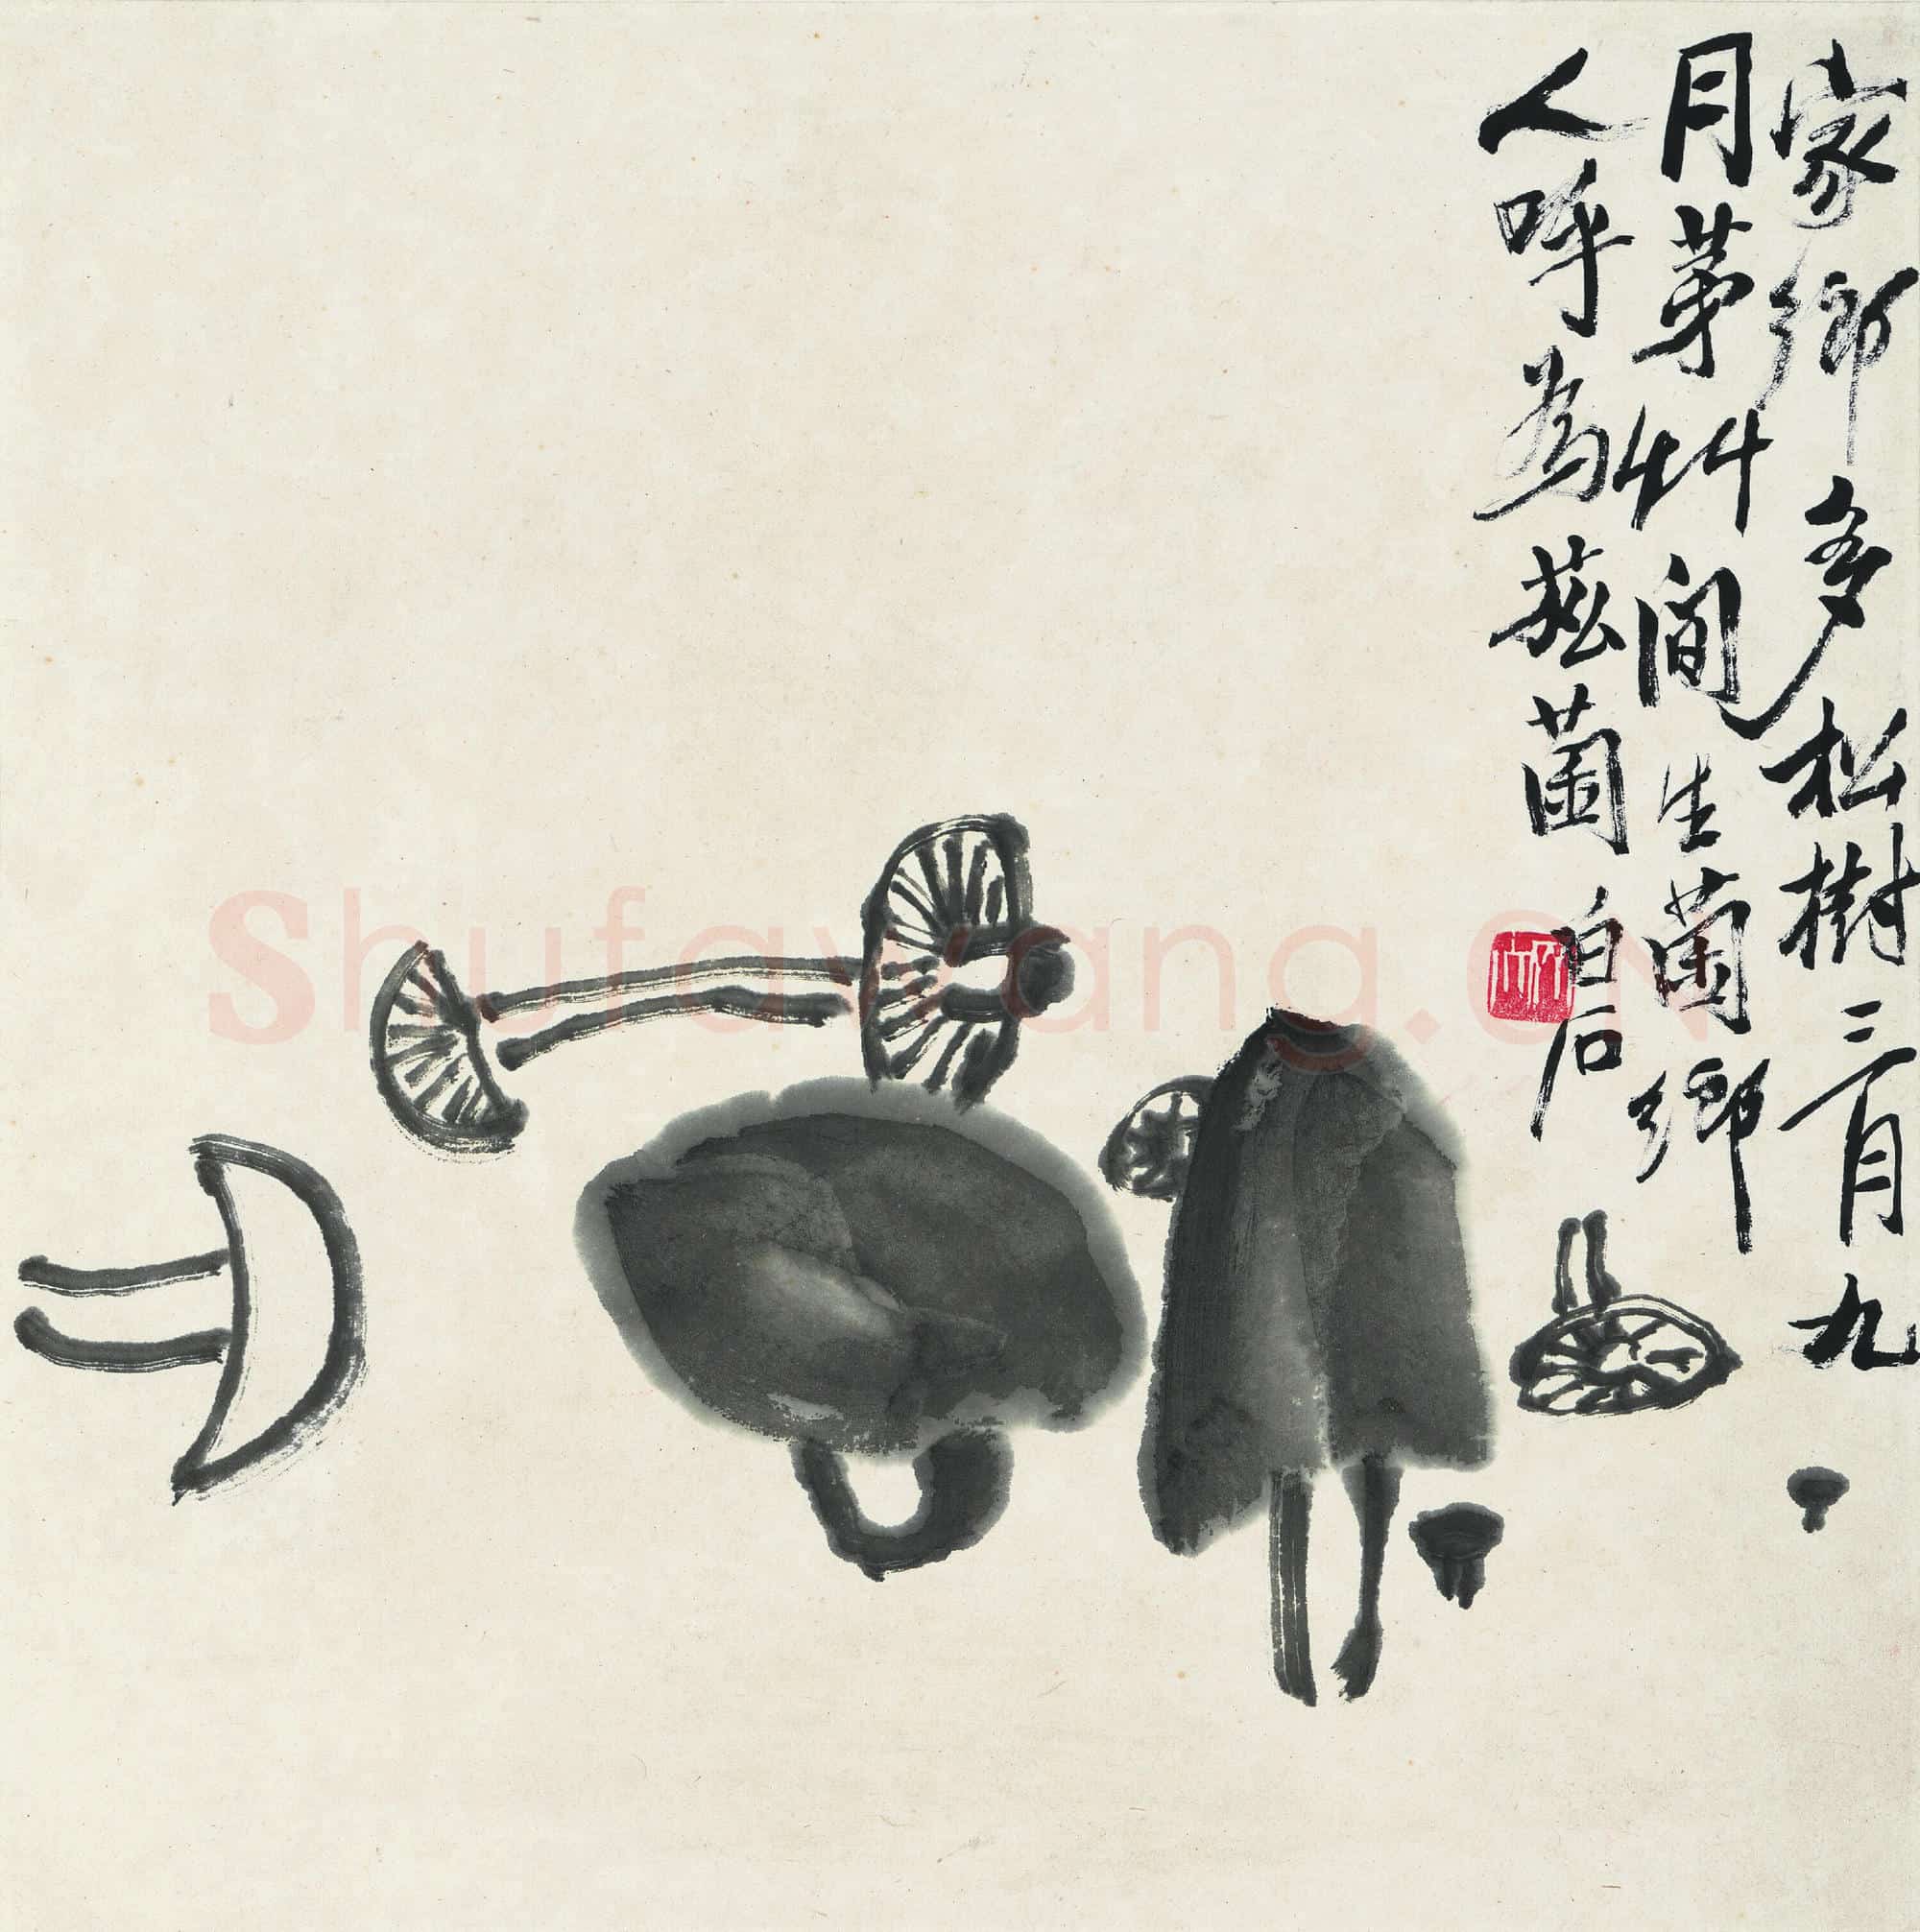 家鄉多松樹三月九
月茅艸間生菌鄉
人呼為菘菌白石
Shufawang.CN